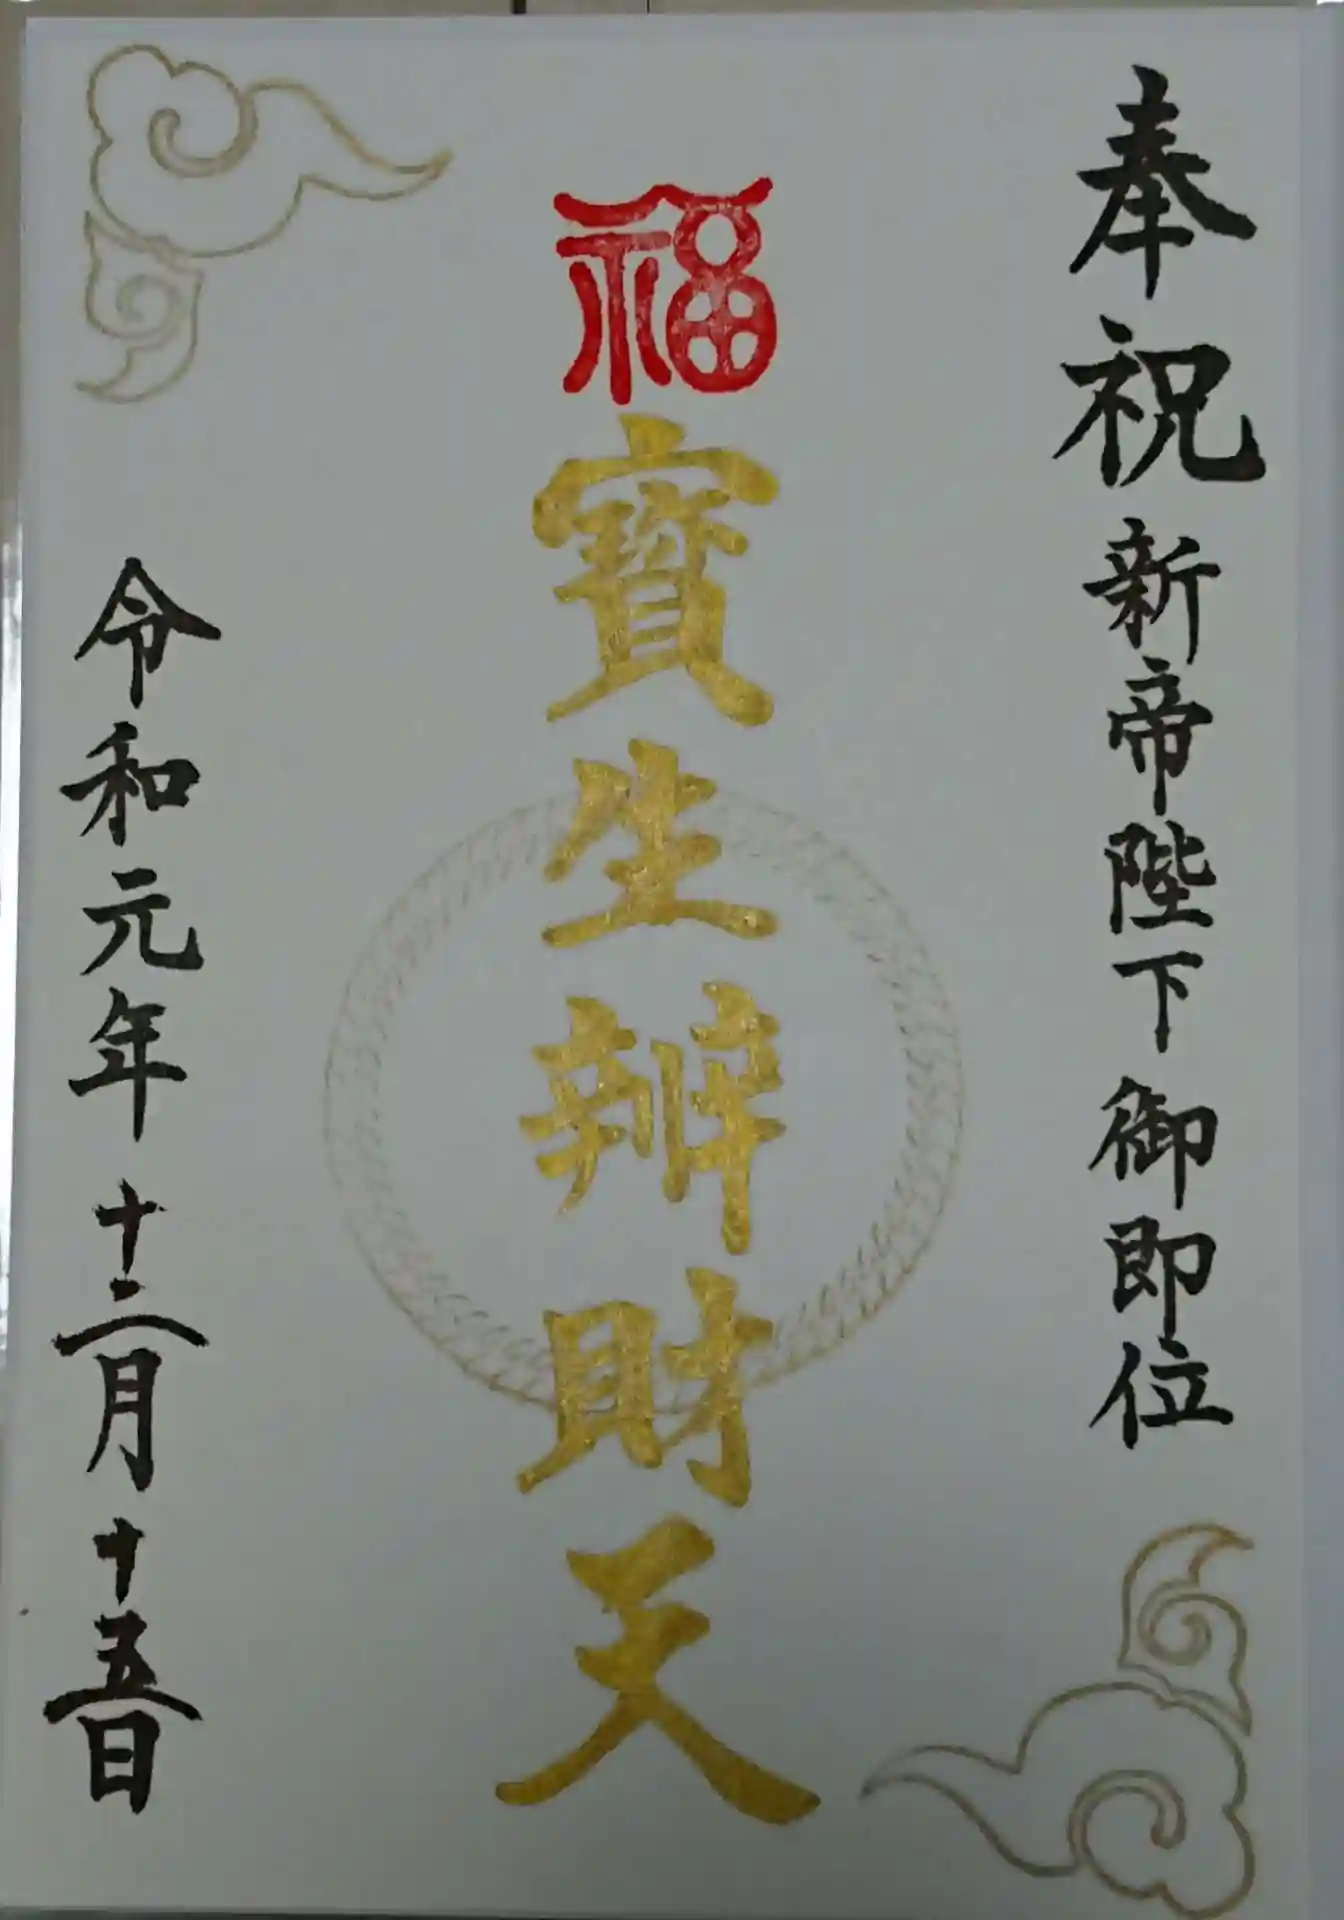 奉祝新帝陛下御即位
福
寳生辨財天
令和元年十二月十五日